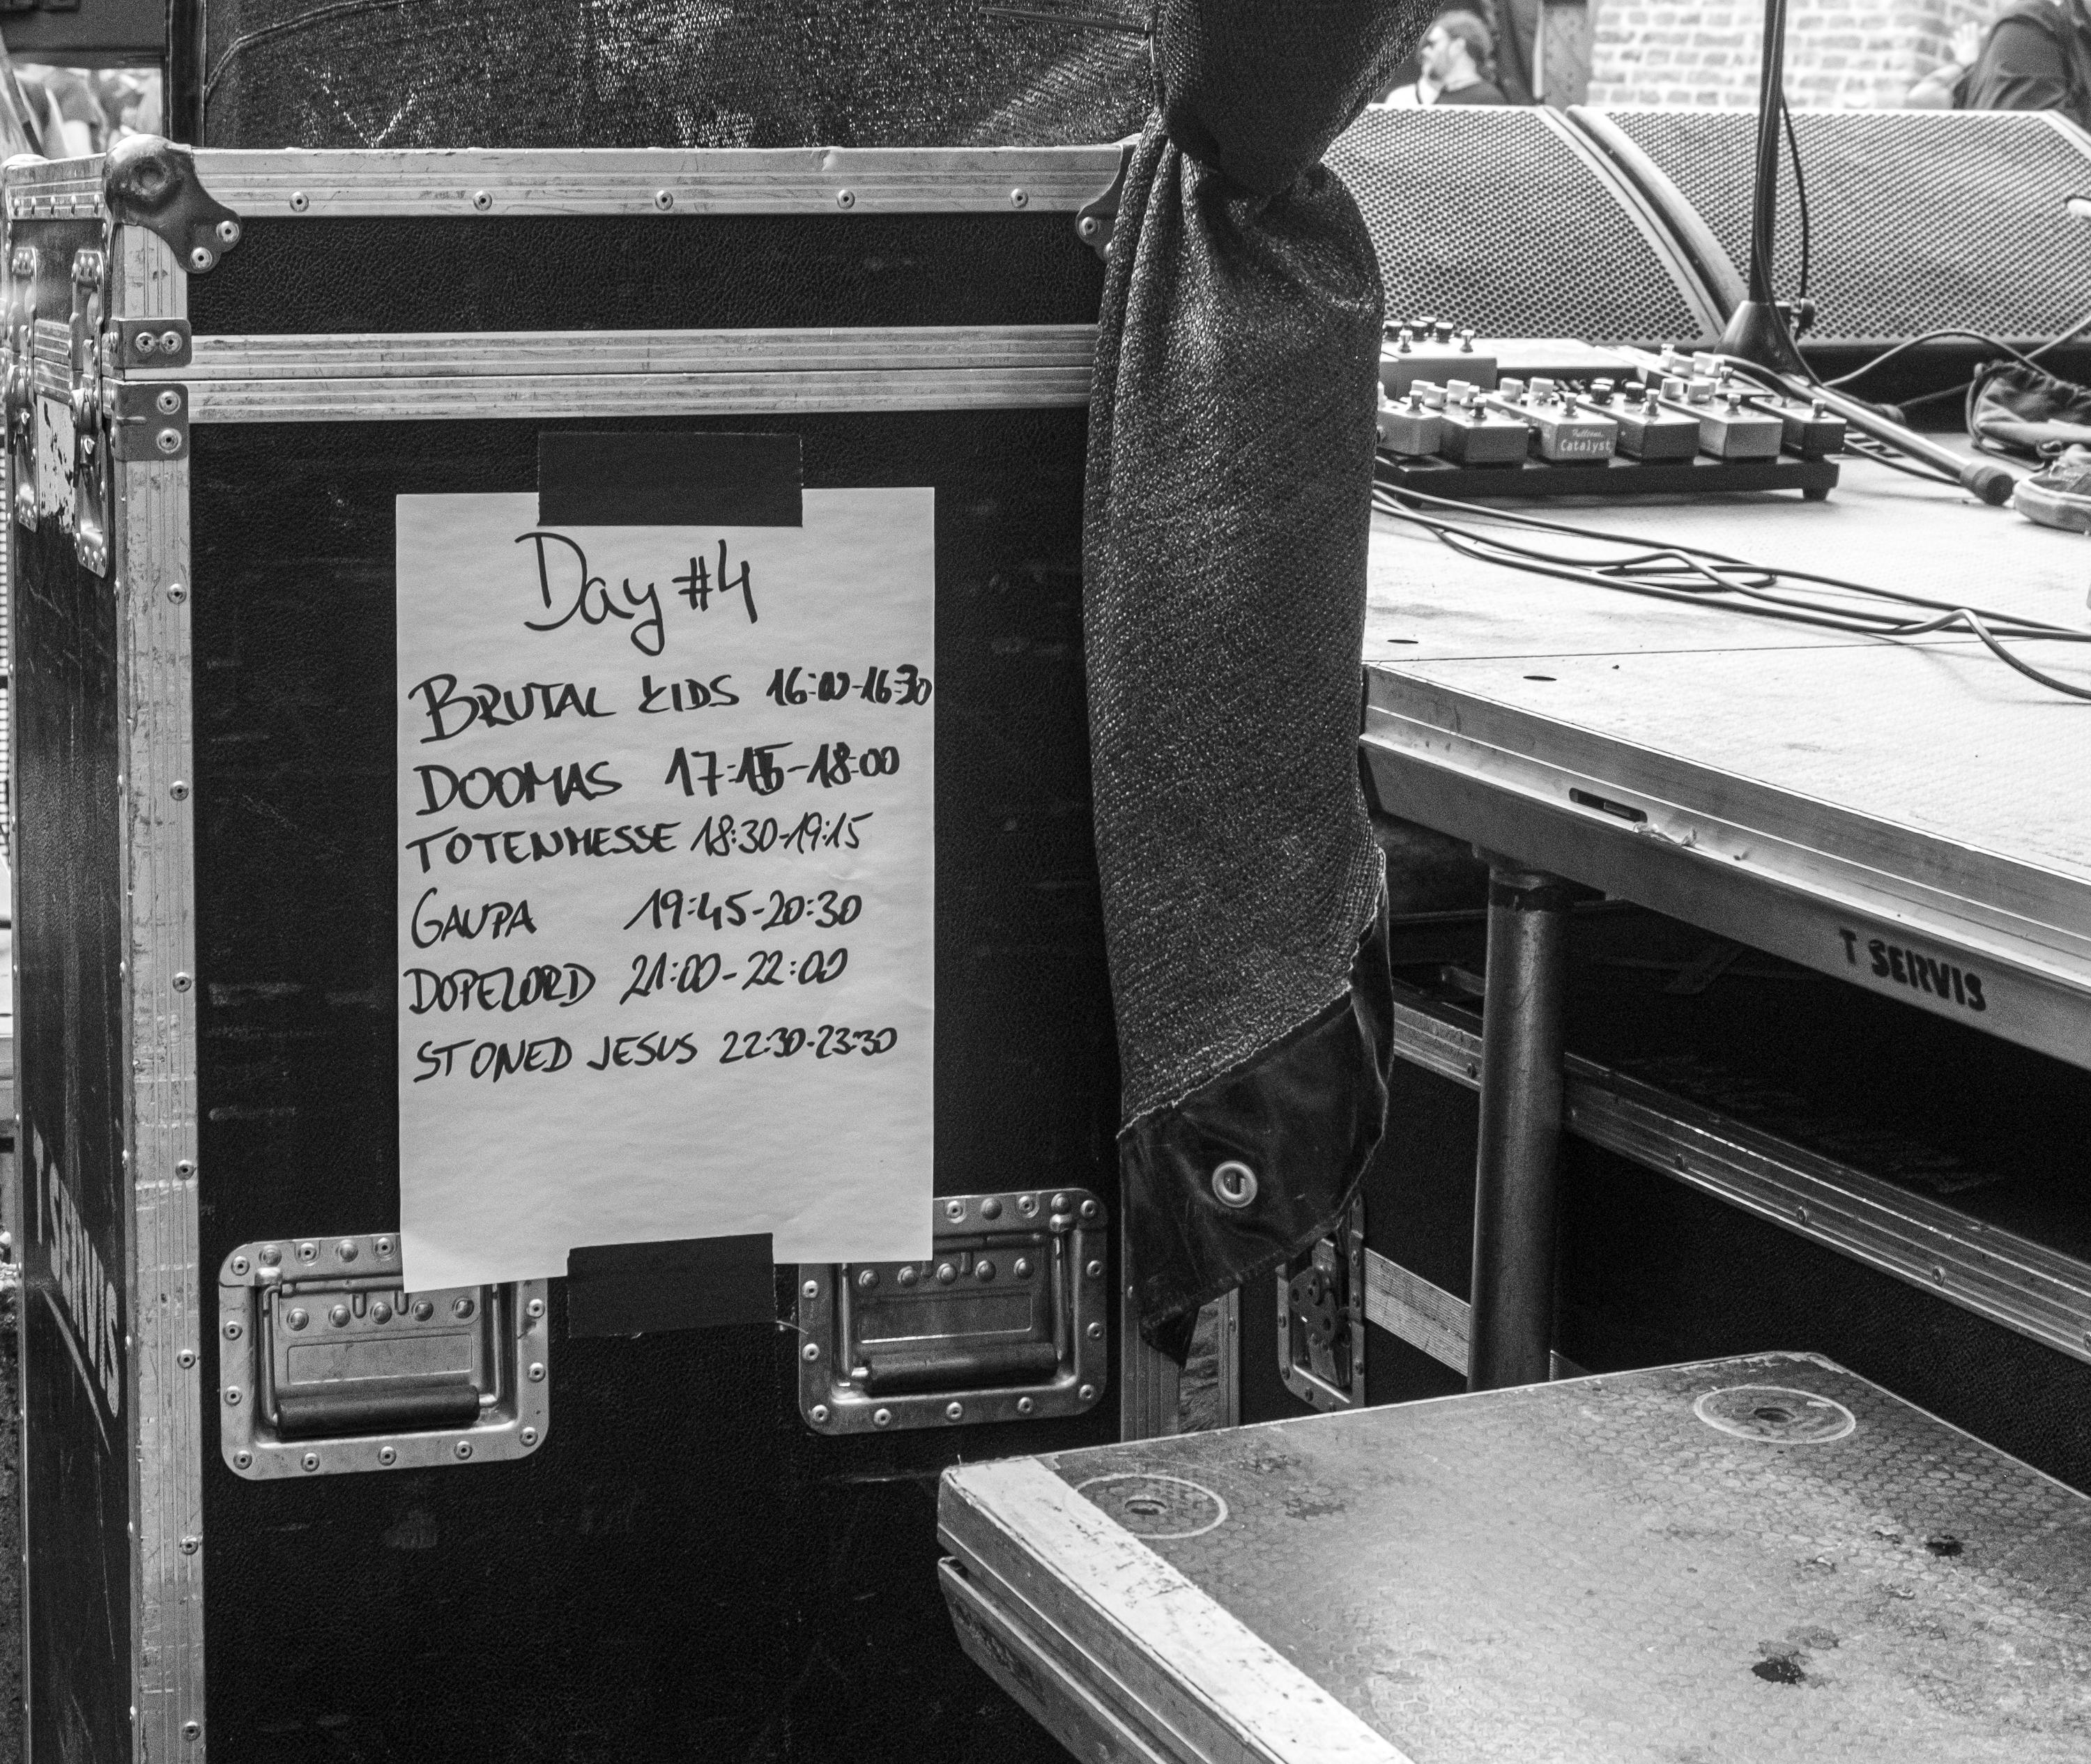 Day #4
BRUTAL KIDS 16:00-16:30
DOOMAS 17:15-18:00
TOTENMESSE 18:30-19:15
GAUPA 19:45-20:30
DOPELORD 21:00-22:00
STONED JESUS 22:30-23:30
Catalyst
T SERVIS
T SERVIS